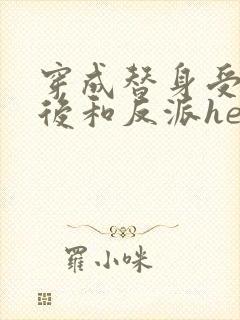 穿成替身受
後和反派he
羅小咪